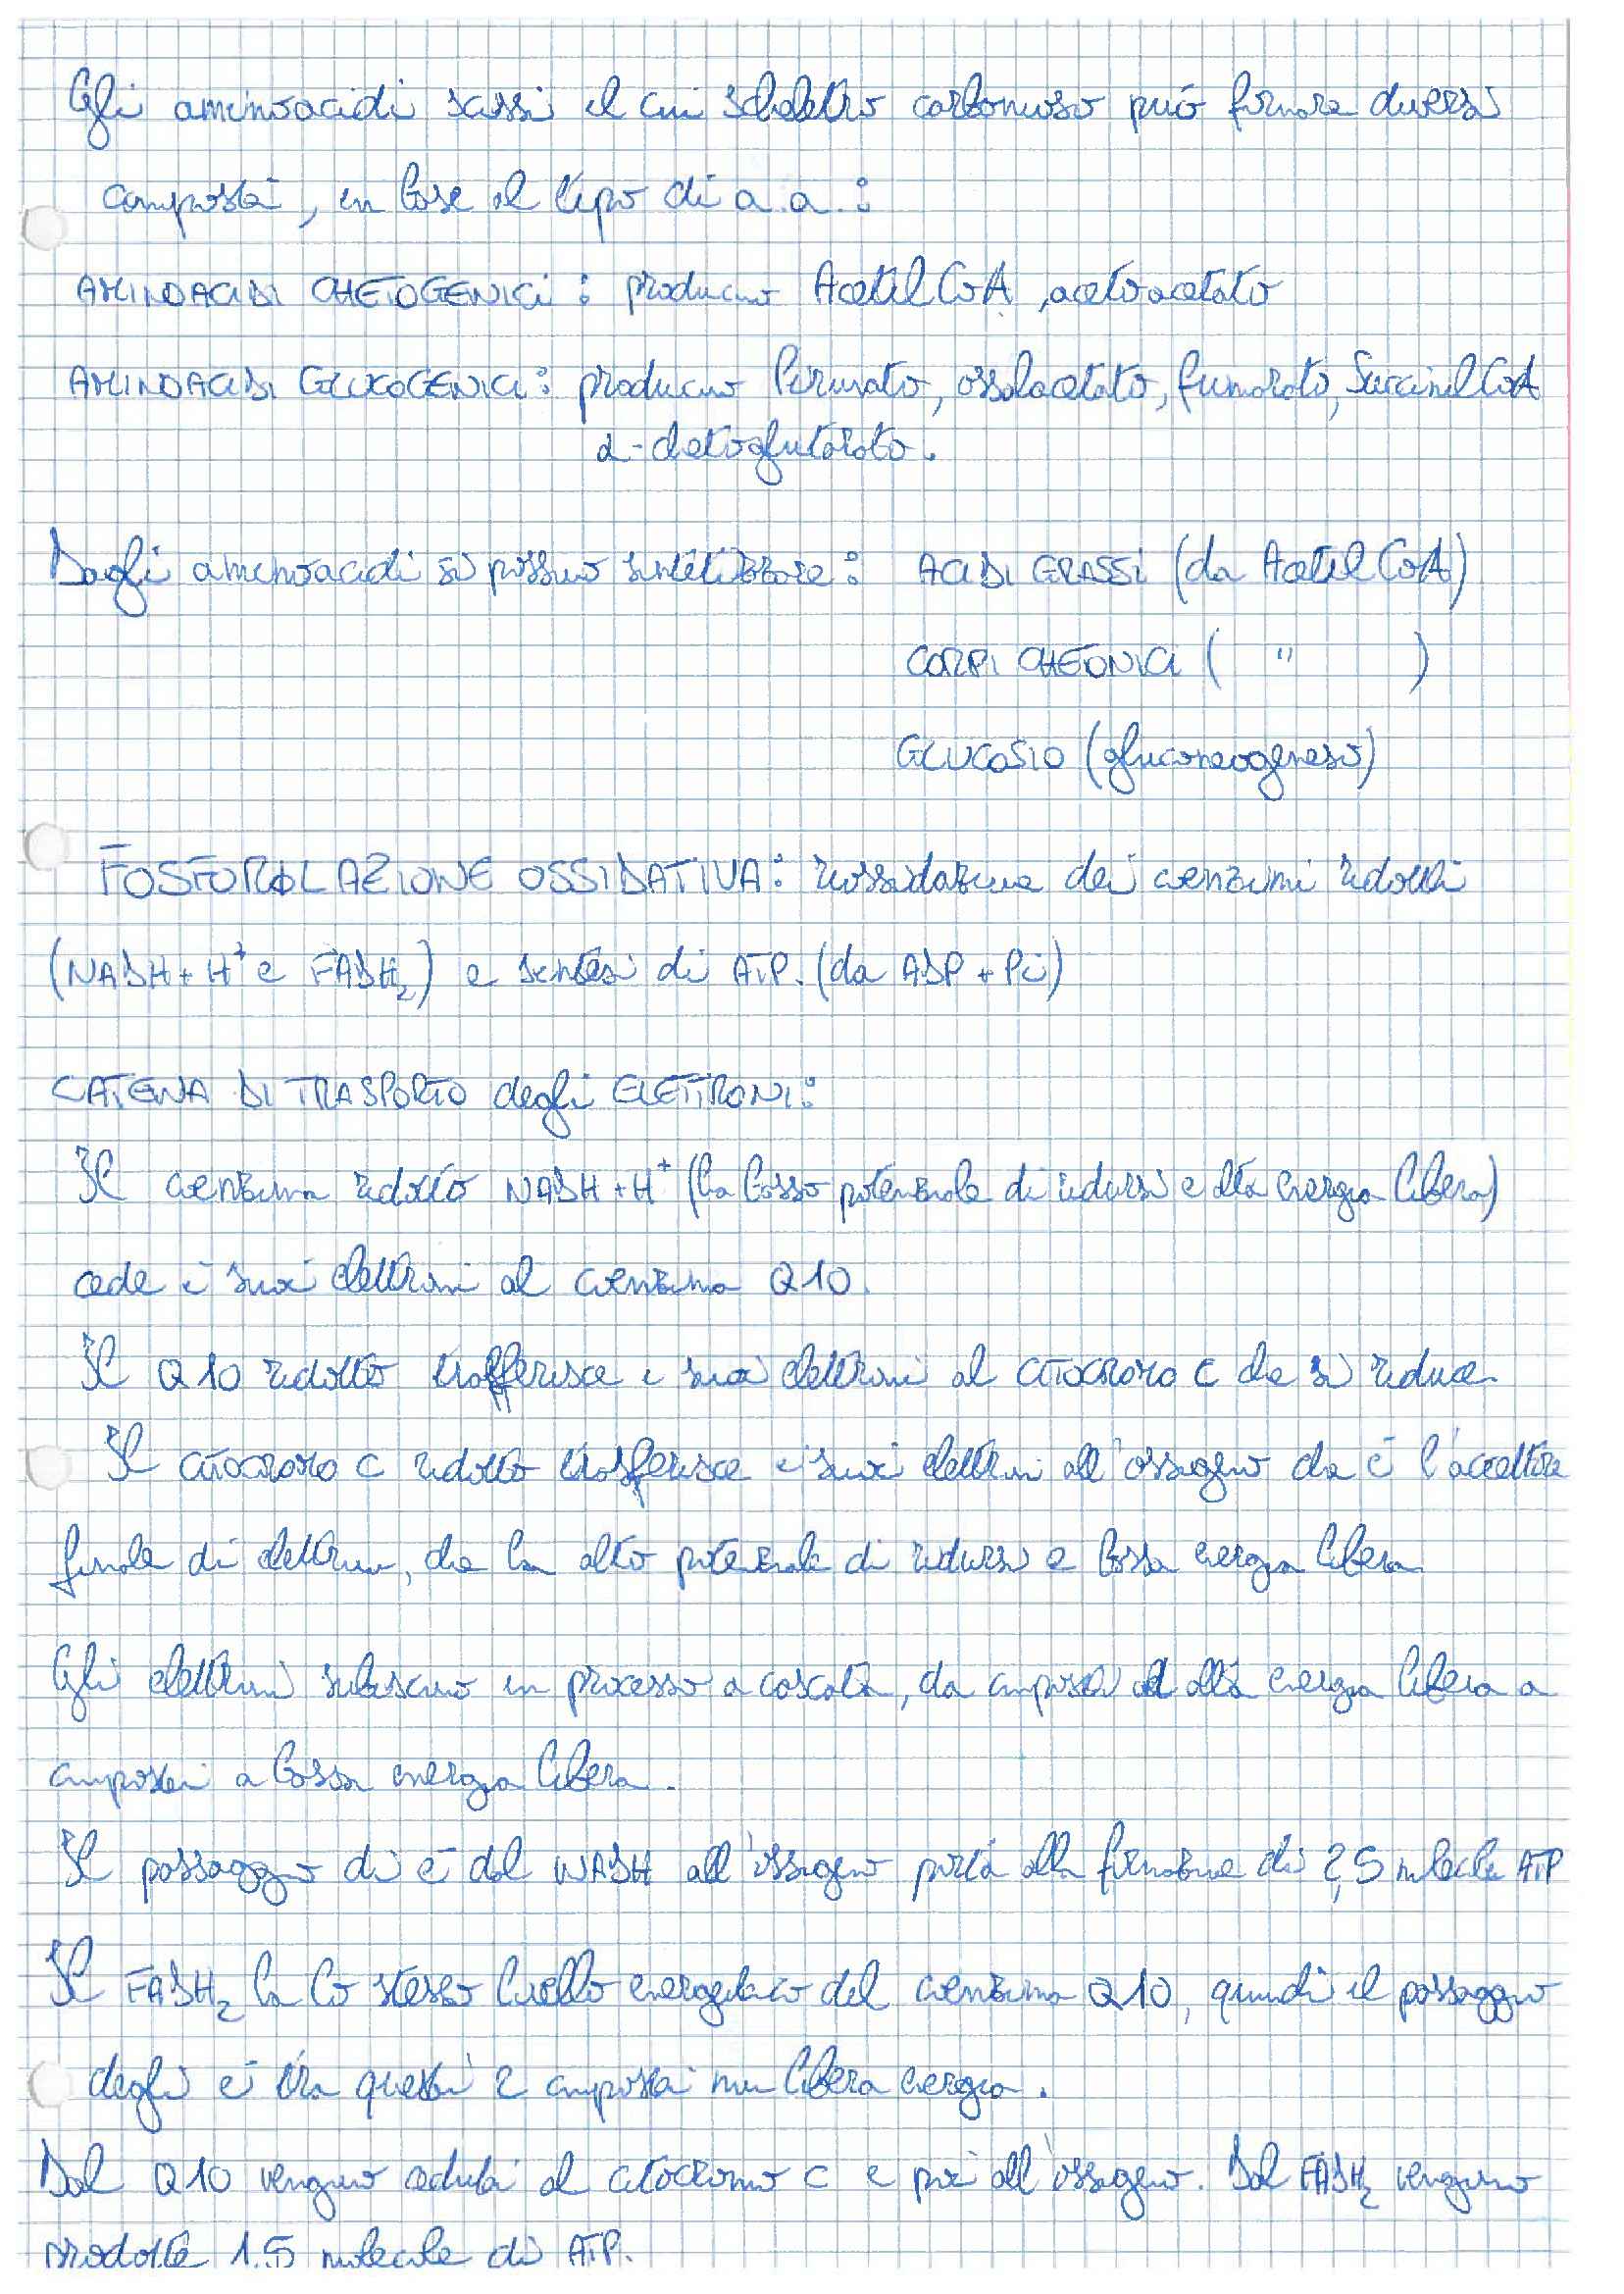 Gli aminoacidi scissi il cui scheletro carbonioso può fornire diversi
composti, in base al tipo di a.a.:
AMINOACIDI CHETOGENICI: producono Acetil CoA, acetoacetato
AMINOACIDI GLUCOGENICI: producono Piruvato, ossalacetato, fumarato, Succinil CoA
α-chetoglutarato.
Dagli aminoacidi si possono sintetizzare: ACIDI GRASSI (da Acetil CoA)
CORPI CHETONICI ( " )
GLUCOSIO (gluconeogenesi)
FOSFORILAZIONE OSSIDATIVA: riossidazione dei coenzimi ridotti
(NADH + H⁺ e FADH₂) e sintesi di ATP. (da ADP + Pi)
CATENA DI TRASPORTO degli ELETTRONI:
Il coenzima ridotto NADH + H⁺ (ha basso potenziale di ridursi e alta energia libera)
cede i suoi elettroni al coenzima Q10.
Il Q10 ridotto trasferisce i suoi elettroni al CITOCROMO C che si riduce.
Il CITOCROMO C ridotto trasferisce i suoi elettroni all'ossigeno che è l'accettore
finale di elettroni, che ha alto potenziale di ridursi e bassa energia libera.
Gli elettroni subiscono un processo a cascata, da composti ad alta energia libera a
composti a bassa energia libera.
Il passaggio di e⁻ dal NADH all'ossigeno porta alla formazione di 2,5 molecole ATP
Il FADH₂ ha lo stesso livello energetico del coenzima Q10, quindi il passaggio
degli e⁻ tra questi 2 composti non libera energia.
Dal Q10 vengono ceduti al citocromo C e poi all'ossigeno. Dal FADH₂ vengono
prodotte 1.5 molecole di ATP.